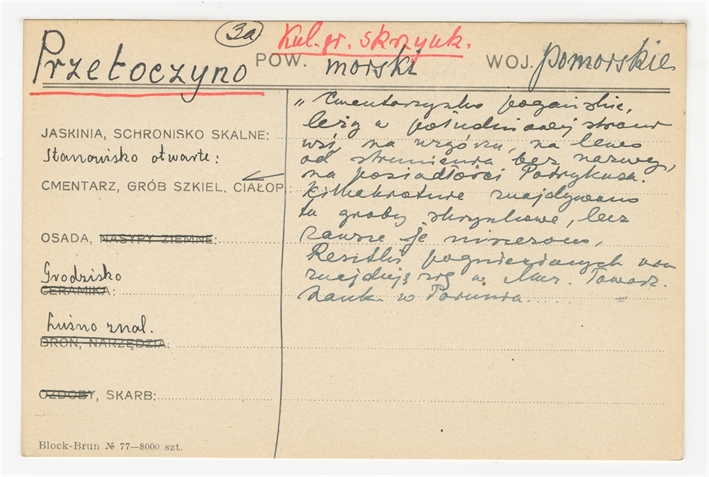 3a Kul. gr. skrzynk.
Przetoczyno POW. morski WOJ. pomorskie
JASKINIA, SCHRONISKO SKALNE:
Stanowisko otwarte:
CMENTARZ, GRÓB SZKIEL, CIAŁOP.:
OSADA, NASYPY ZIEMNE:
Grodzisko
CERAMIKA:
Luźno znal.
BROŃ, NARZĘDZIA:
OZDOBY, SKARB:
Block-Brun № 77—8000 szt.
„Cmentarzysko pogańskie,
leży w południowej stronie
wsi, na wzgórzu, na lewo
od strumienia bez nazwy,
na posiadłości Patrykusa.
Kilkakrotnie znajdywano
tu groby skrzynkowe, lecz
zawsze je niszczono.
Resztki pogniecionych urn
znajdują się w Muz. Towarz.
Nauk. w Toruniu.